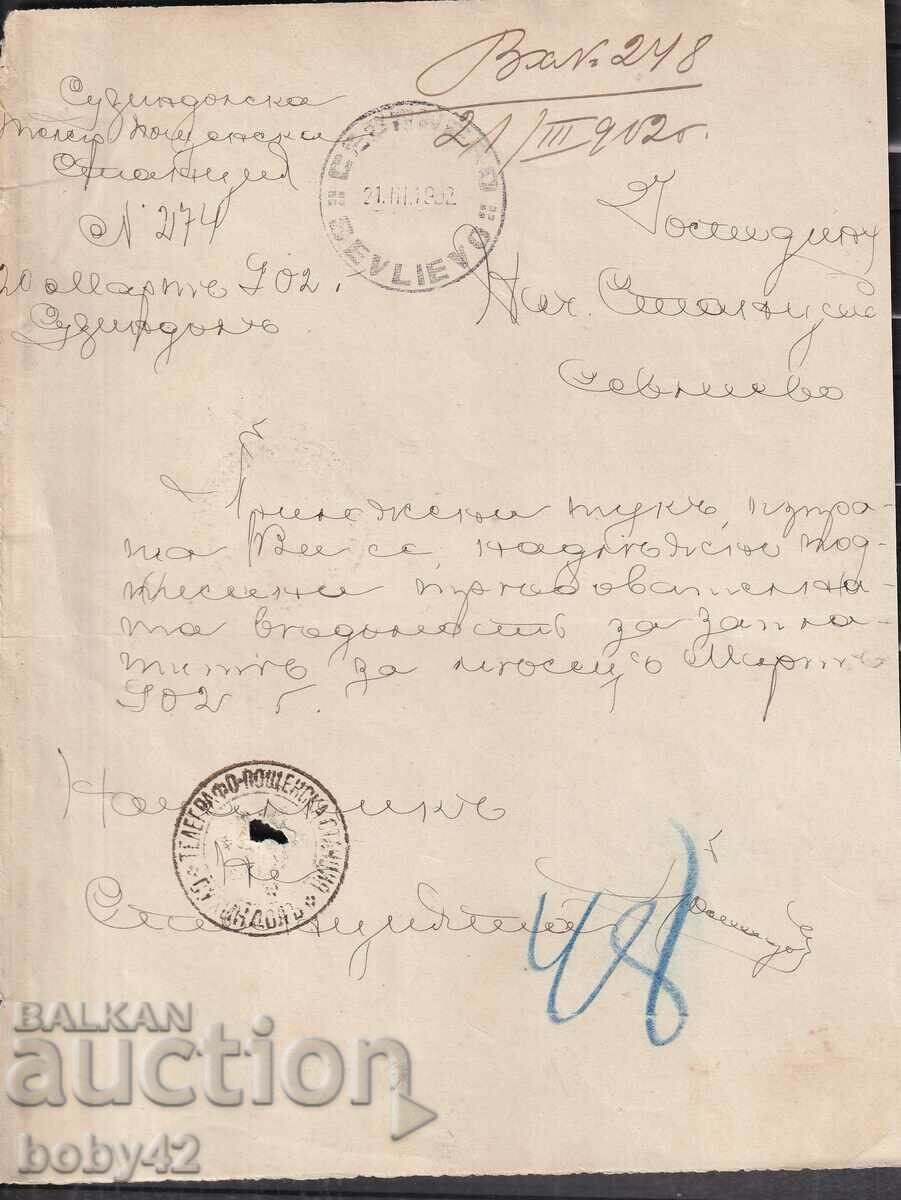 Вх№ 248
21/III 902 г.
Сухиндолска
Телегр. Пощенска
Станция
№ 274
20 Мартъ 902 г.
Сухиндолъ
СЕВЛИЕВО
21.III.1902
SEVLIEVO
Господину
Нач. Станция
Севлиево
Приложени тукъ, изпра-
та Ви се надлѣжно под-
писани требователна-
та вѣдомость за запла-
титѣ за мѣсецъ Мартъ
902 г.
Началникъ
на
Станцията
ТЕЛЕГРАФО-ПОЩЕНСКА СТАНЦИЯ
48
BALKAN
auction
boby42